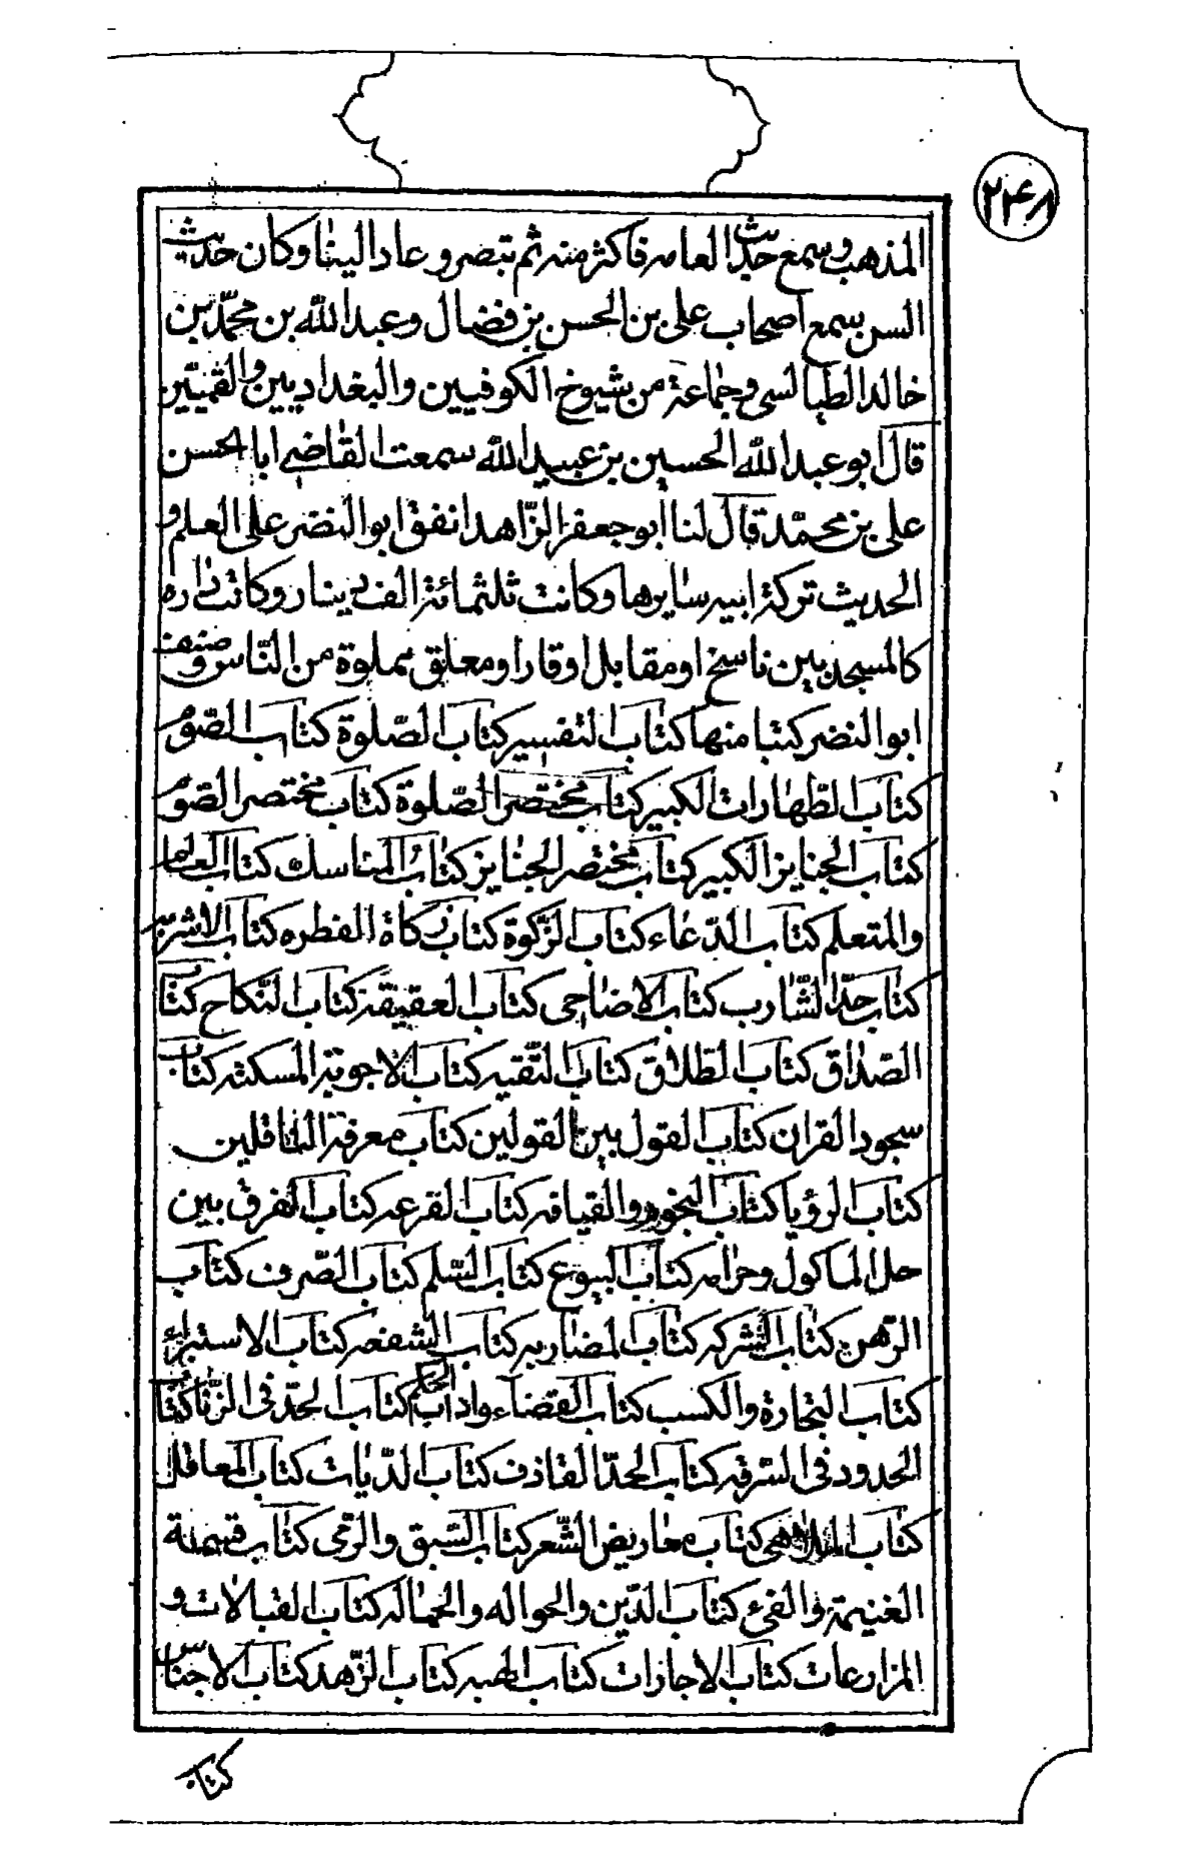 ۲۴۸
المذهب وسمع حديث العامه فاكثر منه ثم تبصر وعاد الينا وكان حديث
السن سمع اصحاب على بن الحسن بن فضال وعبد الله بن محمّد بن
خالد الطيالسى وجماعة من شيوخ الكوفيين والبغداديين والقميّين
قال ابو عبد الله الحسين بن عبيد الله سمعت القاضى ابا الحسن
على بن محمّد قال لنا ابو جعفر الزّاهد انفق ابو النضر على العلم و
الحديث تركة ابيه سايرها وكانت ثلثمائة الف دينار وكانت داره
كالمسجد بين ناسخ او مقابل او قار او معلق مملوة من النّاس وصنف
ابو النضر كتبا منها كتاب التفسير كتاب الصّلوة كتاب الصّوم
كتاب الطّهارات الكبير كتاب مختصر الصّلوة كتاب مختصر الصّوم
كتاب الجنايز الكبير كتاب مختصر الجنايز كتاب المناسك كتاب العالم
والمتعلم كتاب الدّعاء كتاب الزّكوة كتاب زكاة الفطره كتاب الاشربة
كتاب حدّ الشّارب كتاب الاضاحى كتاب العقيقة كتاب النّكاح كتاب
الصّداق كتاب الطّلاق كتاب التّقيه كتاب الاجوبة المسكته كتاب
سجود القران كتاب القول بين القولين كتاب معرفة الناقلين
كتاب الرؤيا كتاب النجوم والقيافه كتاب القرعه كتاب الفرق بين
حل الماكول وحرامه كتاب البيوع كتاب السّلم كتاب الصّرف كتاب
الرّهن كتاب الشركه كتاب المضاربه كتاب الشفعه كتاب الاستبراء
كتاب التجارة والكسب كتاب القضاء واداب الحكم كتاب الحدّ فى الزّنا كتاب
الحدود فى السّرقه كتاب الحدّ القاذف كتاب الدّيات كتاب المعاقل
كتاب الملاهى كتاب معاريض الشّعر كتاب السّبق والرّمى كتاب قسمة
الغنيمة والفىء كتاب الدّين والحواله والحماله كتاب القبالات و
المزارعات كتاب الاجارات كتاب الهبه كتاب الزّهد كتاب الاجناس
كتاب